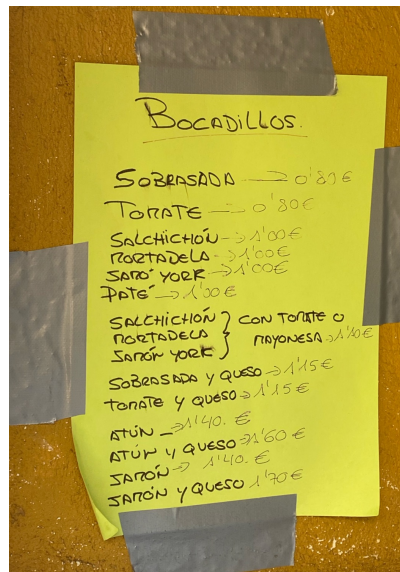 BOCADILLOS.
SOBRASADA → 0'80€
TOMATE → 0'80€
SALCHICHÓN → 1'00€
MORTADELA → 1'00€
JAMÓ YORK → 1'00€
PATÉ → 1'00€
SALCHICHÓN } CON TOMATE O
MORTADELA MAYONESA → 1'10€
JAMÓN YORK
SOBRASADA Y QUESO → 1'15€
TOMATE Y QUESO → 1'15€
ATÚN → 1'40. €
ATÚN Y QUESO → 1'60€
JAMÓN → 1'40. €
JAMÓN Y QUESO 1'70€